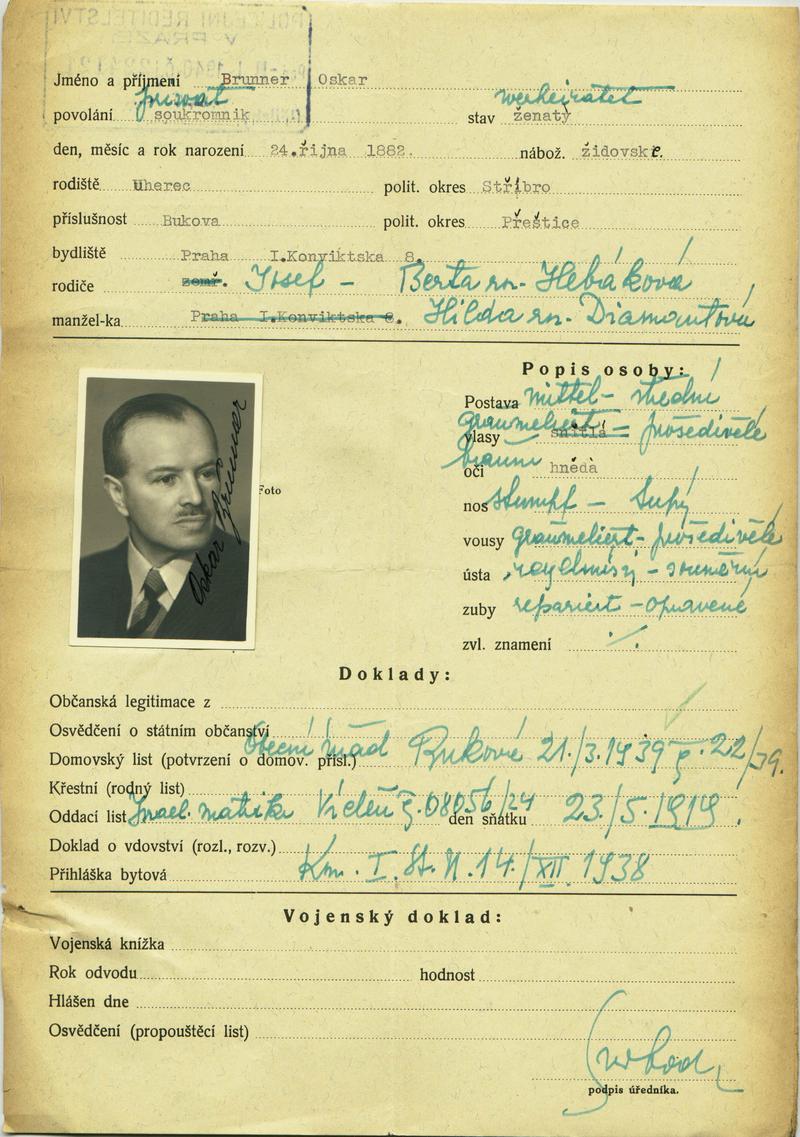 POLICEJNÍ ŘEDITELSTVÍ
V PRAZE
Jméno a příjmení Brunner Oskar
privat verheiratet
povolání soukromník stav ženatý
den, měsíc a rok narození 24.října 1882. nábož. židovské.
rodiště Uherec polit. okres Stříbro
příslušnost Bukova polit. okres Přeštice
bydliště Praha I.Konviktska 8.
rodiče zemř. Josef - Berta roz. Hebáková
manžel-ka Praha I.Konviktska 8. Hilda roz. Diamantová
Popis osoby:
Postava mittel - střední
vlasy graumeliert - prošedivělé
oči braun hnědà
nos stumpf - tupý
vousy graumeliert - prošedivělé
ústa - souměrný
zuby repariert - opravené
zvl. znamení
Foto
Oskar Brunner
Doklady:
Občanská legitimace z
Osvědčení o státním občanství
Domovský list (potvrzení o domov. přísl.) Obecní úřad Buková 21./3.1939 č. 22/39.
Křestní (rodný list)
Oddací list Israel. matrika Vídeň č. 08056/24 den sňatku 23./5.1919.
Doklad o vdovství (rozl., rozv.)
Přihláška bytová Km. I. St. N. 14./XII 1938
Vojenský doklad:
Vojenská knížka
Rok odvodu hodnost
Hlášen dne
Osvědčení (propouštěcí list)
podpis úředníka.